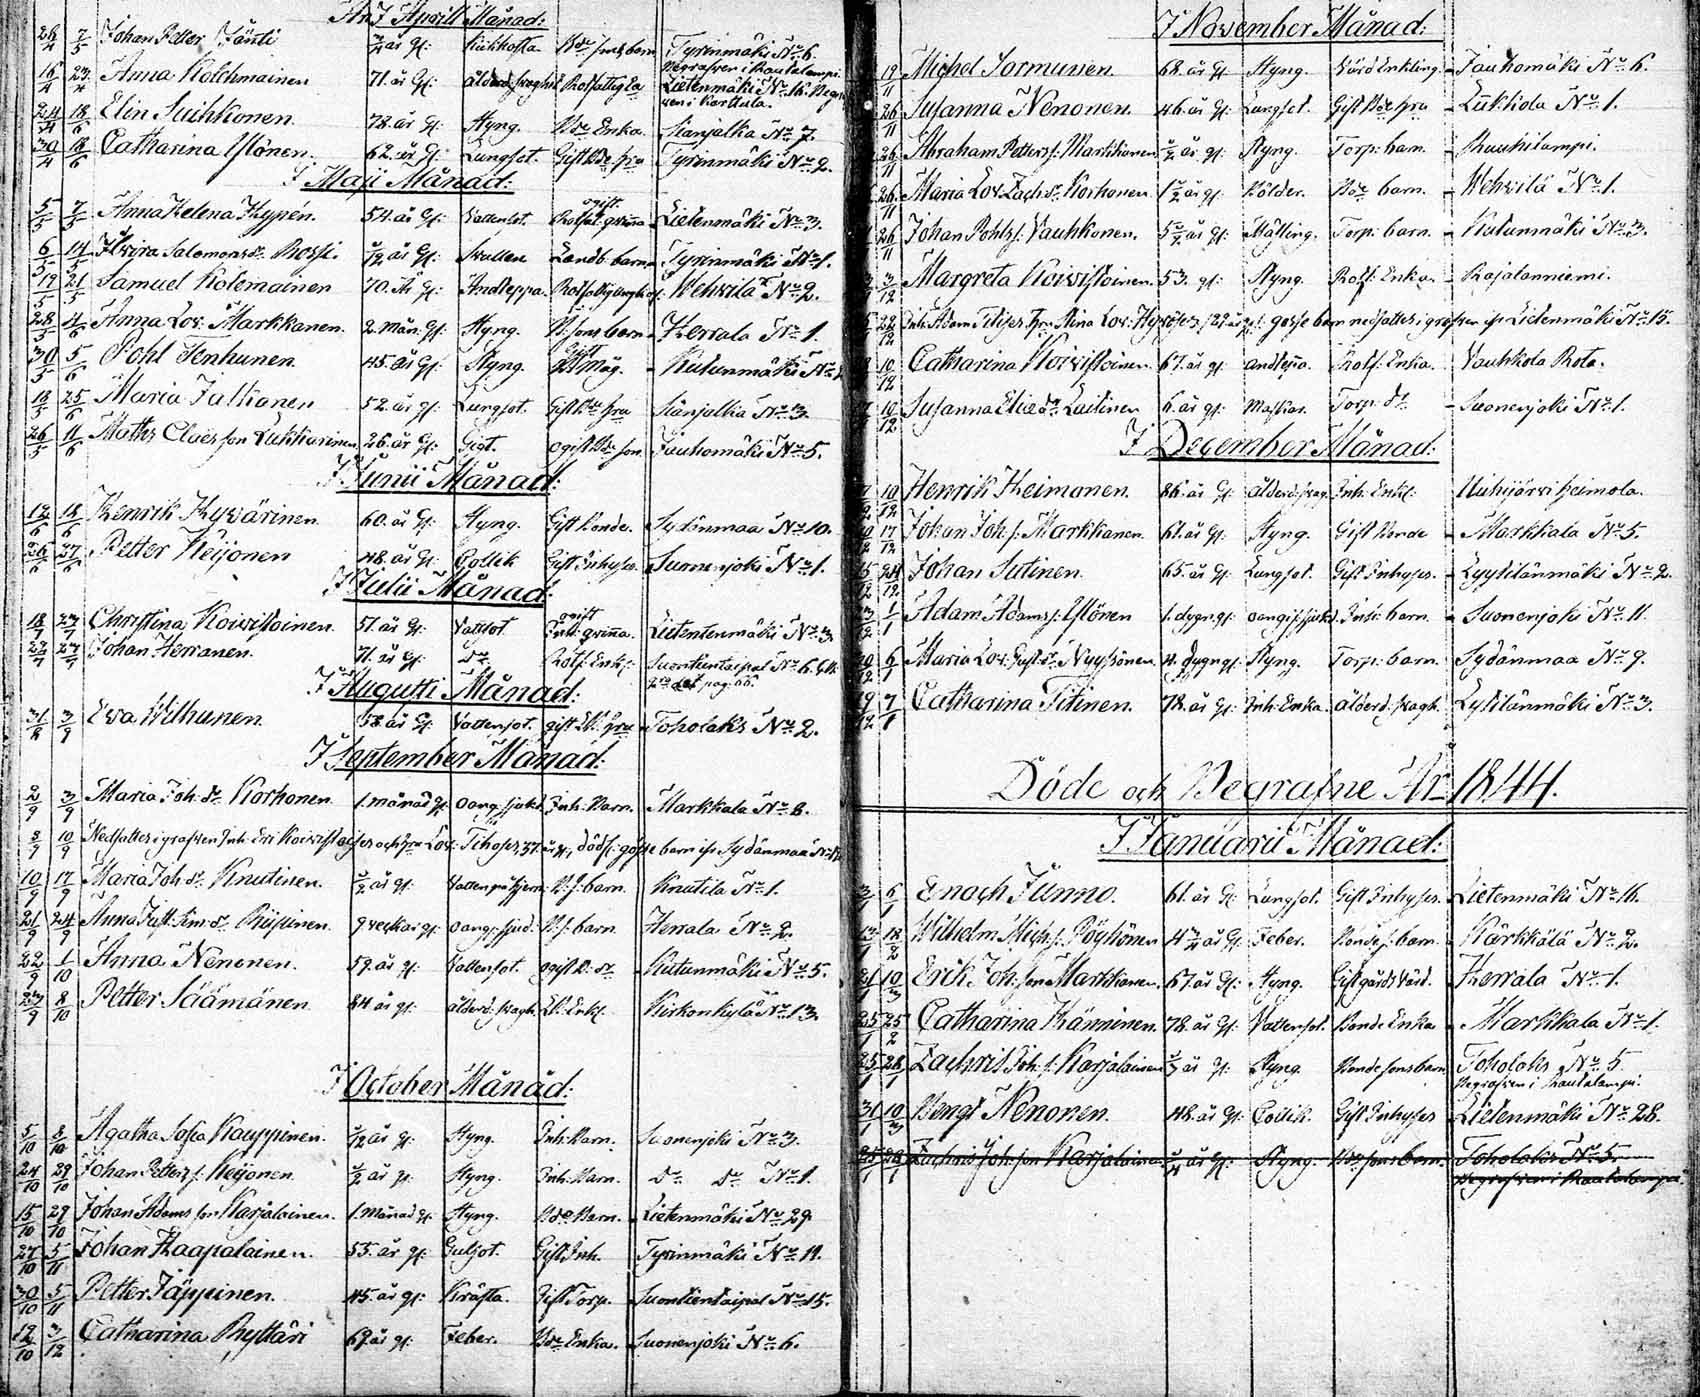 An I Aprill Månad:
26/4 7/5 Johan Petter Jänti 3/4 år gl: Kikhosta Bde sons barn Tyrinmäki No 6. Begrafven i Rautalampi.
16/4 23/4 Anna Kolehmainen 71. år Gl: ålderd. svaghet Rotfattig Ea Lietenmäki No 16. Begrafven i Karttula.
24/4 18/6 Elin Suihkonen 78. år gl: Styng. Bde Enka. Sianjalka No 7.
30/4 18/6 Catharina Ylönen. 62. år Gl: Lungsot. Gift Bde hru Tyrinmäki No 2.
I Maji Månad:
5/5 7/5 Anna Helena Hypén. 54. år Gl: Vattensot. ogift Rotfat. qvinna Lietenmäki No 3.
6/5 14/5 Salomons dr Rossi. /12 år Gl: Skallen Landb. barn Tyrinmäki No 1.
19/5 21/5 Samuel Kolemainen 70. År Gl: Andteppa. Rotfattig Wehvilä No 2.
28/5 4/6 Anna Lov: Markkanen. 2. mån: Gl: Styng. B. sons barn Herrala No 1.
30/5 5/6 Pohl Tenhunen. 45. år Gl: Styng. gift måg. Kutunmäki No
18/5 25/6 Maria Jalkanen 52. år gl: Lungsot. Gift Bde hru Sianjalka No 3.
26/5 11/6 Maths Claës son Lukkarinen 26. år Gl: Gigt. ogift Bde: son. Jauhomäki No 5.
I Junii Månad:
12/6 18/6 Henrik Hyvärinen. 60. år Gl: Styng. Gift Bonde. Sydänmaa No 10.
26/6 27/6 Petter Keijonen 48. år Gl: Collik Gift Inhyses. Suonenjoki No 1.
I Julii Månad:
18/7 23/7 Christina Koivistoinen. 51. år Gl: Vattsot. ogift Inh: qvinna. Lietentenmäki No 3
22/7 27/7 Johan Herranen. 71. år Gl: Do Rotf: Enkl: Suontientaipal No 6.
I Augusti Månad:
31/8 3/9 Eva Wilhunen. 58. år Gl: Vattensot. gift hru Toholaks No 2.
I September Månad:
2/9 3/9 Maria Joh: dr Korhonen 1. månad gl: oang. sjukd. Inh: Barn. Markkala No 8.
8/9 10/9 Nedsattes i grafven Inh: Eri Koivist och hru Lov: Tiihoses, 37. år gl, dödf: gosse barn ifr. Sydänmaa No
10/9 17/9 Maria Joh dr Knutinen. 1/2 år gl: Vatten på hjern. B. s. barn. Knutila No 1.
21/9 24/9 Anna Just: Sim dr Riipinen. 9 veckar gl: oang: sjud. B. s. barn. Herrala No 2.
22/9 1/10 Anna Nenonen. 59. år gl: Vattensot. ogift B: dr Kutunmäki No 5.
23/9 8/10 Petter Jäämänen 84 år gl: ålderd. svagh. Enkl. Kirkonkylä No 13.
I October Månad:
5/10 8/10 Agatha Sofia Kauppinen. /12 år gl: Styng. Inh: Barn. Suonenjoki No 3.
24/10 29/10 Johan Petters s. Keijonen /2 år gl. Styng. Inh: Barn. Do Do No 1.
15/10 29/10 Johan Adams son Karjalainen. 1. månad gl: Styng. Bde Barn. Lietenmäki No 29
27/10 5/11 Johan Haapalainen. 55. år gl: Gulsot. Gift Inh. Tyrinmäki No 11.
30/10 5/11 Petter Jäppinen. 45. år gl: Kräfta. Gift Torp. Suontientaipal No 15.
12/10 3/12 Catharina Ryttäri 69. år gl: Feber. Bde Enka. Suonenjoki No 6.
I November Månad:
19/11 Michel Sormunen. 68. år gl Styng. Värd Enkling. Jauhomäki No 6.
26/11 Susanna Nenonen. 46. år Gl: Lungsot. Gift Bde hru Liikkola No 1.
26/11 Abraham Petters s. Markkanen /2 år gl: Styng. Torp: barn. Ruuhilampi.
26/11 Maria Lov: Zach dr Korhonen 1 /2 år gl: Bölder. Bde barn. Wehvilä No 1.
26/11 Johan Pohls s. Vauhkonen. 5 år gl: Mässling. Torp: barn. Kutunmäki No 3.
3/12 Margreta Koivistoinen 53. gl: Styng. Rotf: Enka. Rajalanniemi.
22/12 Inh: Adam hru Mina Lov: gosse barn nedsattes i grafven ifr Lietenmäki No 15.
10/12 Catharina Koivistoinen. 67. år gl: andtäpa. Rotf: Enka. Vauhkola Rota.
10/12 Susanna Elias dr Laitinen 6. år gl: Maskar. Torp: dr Suonenjoki No 1.
I December Månad:
10/12 Henrik Heimonen. 86. år Gl: ålderd: svag. Inh: Enkl: Uuhijärvi Heimola.
17/12 Johan Joh: s. Markkanen. 61. år Gl: Styng. Gift Bonde Markkala No 5.
24/12 Johan Sutinen. 65. år Gl: Lungsot. Gift Inhyses. Lyytilänmäki No 2.
1/1 Adam Adams s. Ylönen 1. dygn. gl: oangif. sjukd. Inh: barn. Suonenjoki No 11.
6/1 Maria Lov. Gust. dr Nyyssönen 4. dygn gl: Styng. Torp: barn. Sydänmaa No 9.
19/12 7/1 Catharina Titinen. 78. år Gl: Inh: Enka. ålderd. svagh. Lytilänmäki No 3.
Döde och Begrafne År 1844.
I Januarii Månad:
3/1 6/1 Enoch Jünno. 61. år Gl: Lungsot. Gift Inhyses. Lietenmäki No 16.
18/2 Wilhelm Mich: s. Pöyhönen 4 år Gl: Feber. Bonde s. barn. Kärkkälä No 2.
31/1 10/3 Erik Joh: son Markkanen. 67. år Gl: Styng. Gift gårds värd. Herrala No 1.
25/1 25/2 Catharina Hänninen. 78. år Gl: Vattensot. Bonde Enka Markkala No 1.
25/1 28/1 Zachris Joh: s. Karjalainen år gl: Styng. Bonde sons barn Toholaks No 5. Begrafven i Rautalampi.
31/1 10/3 Bengt Nenonen. 48. år Gl: Collik. Gift Inhyses Lietenmäki No 28.
25/1 28/1 Zachris Joh: son Karjalainen år Gl: Styng. Bde sons barn. Toholaks No 5. Begrafven i Rautalampi.